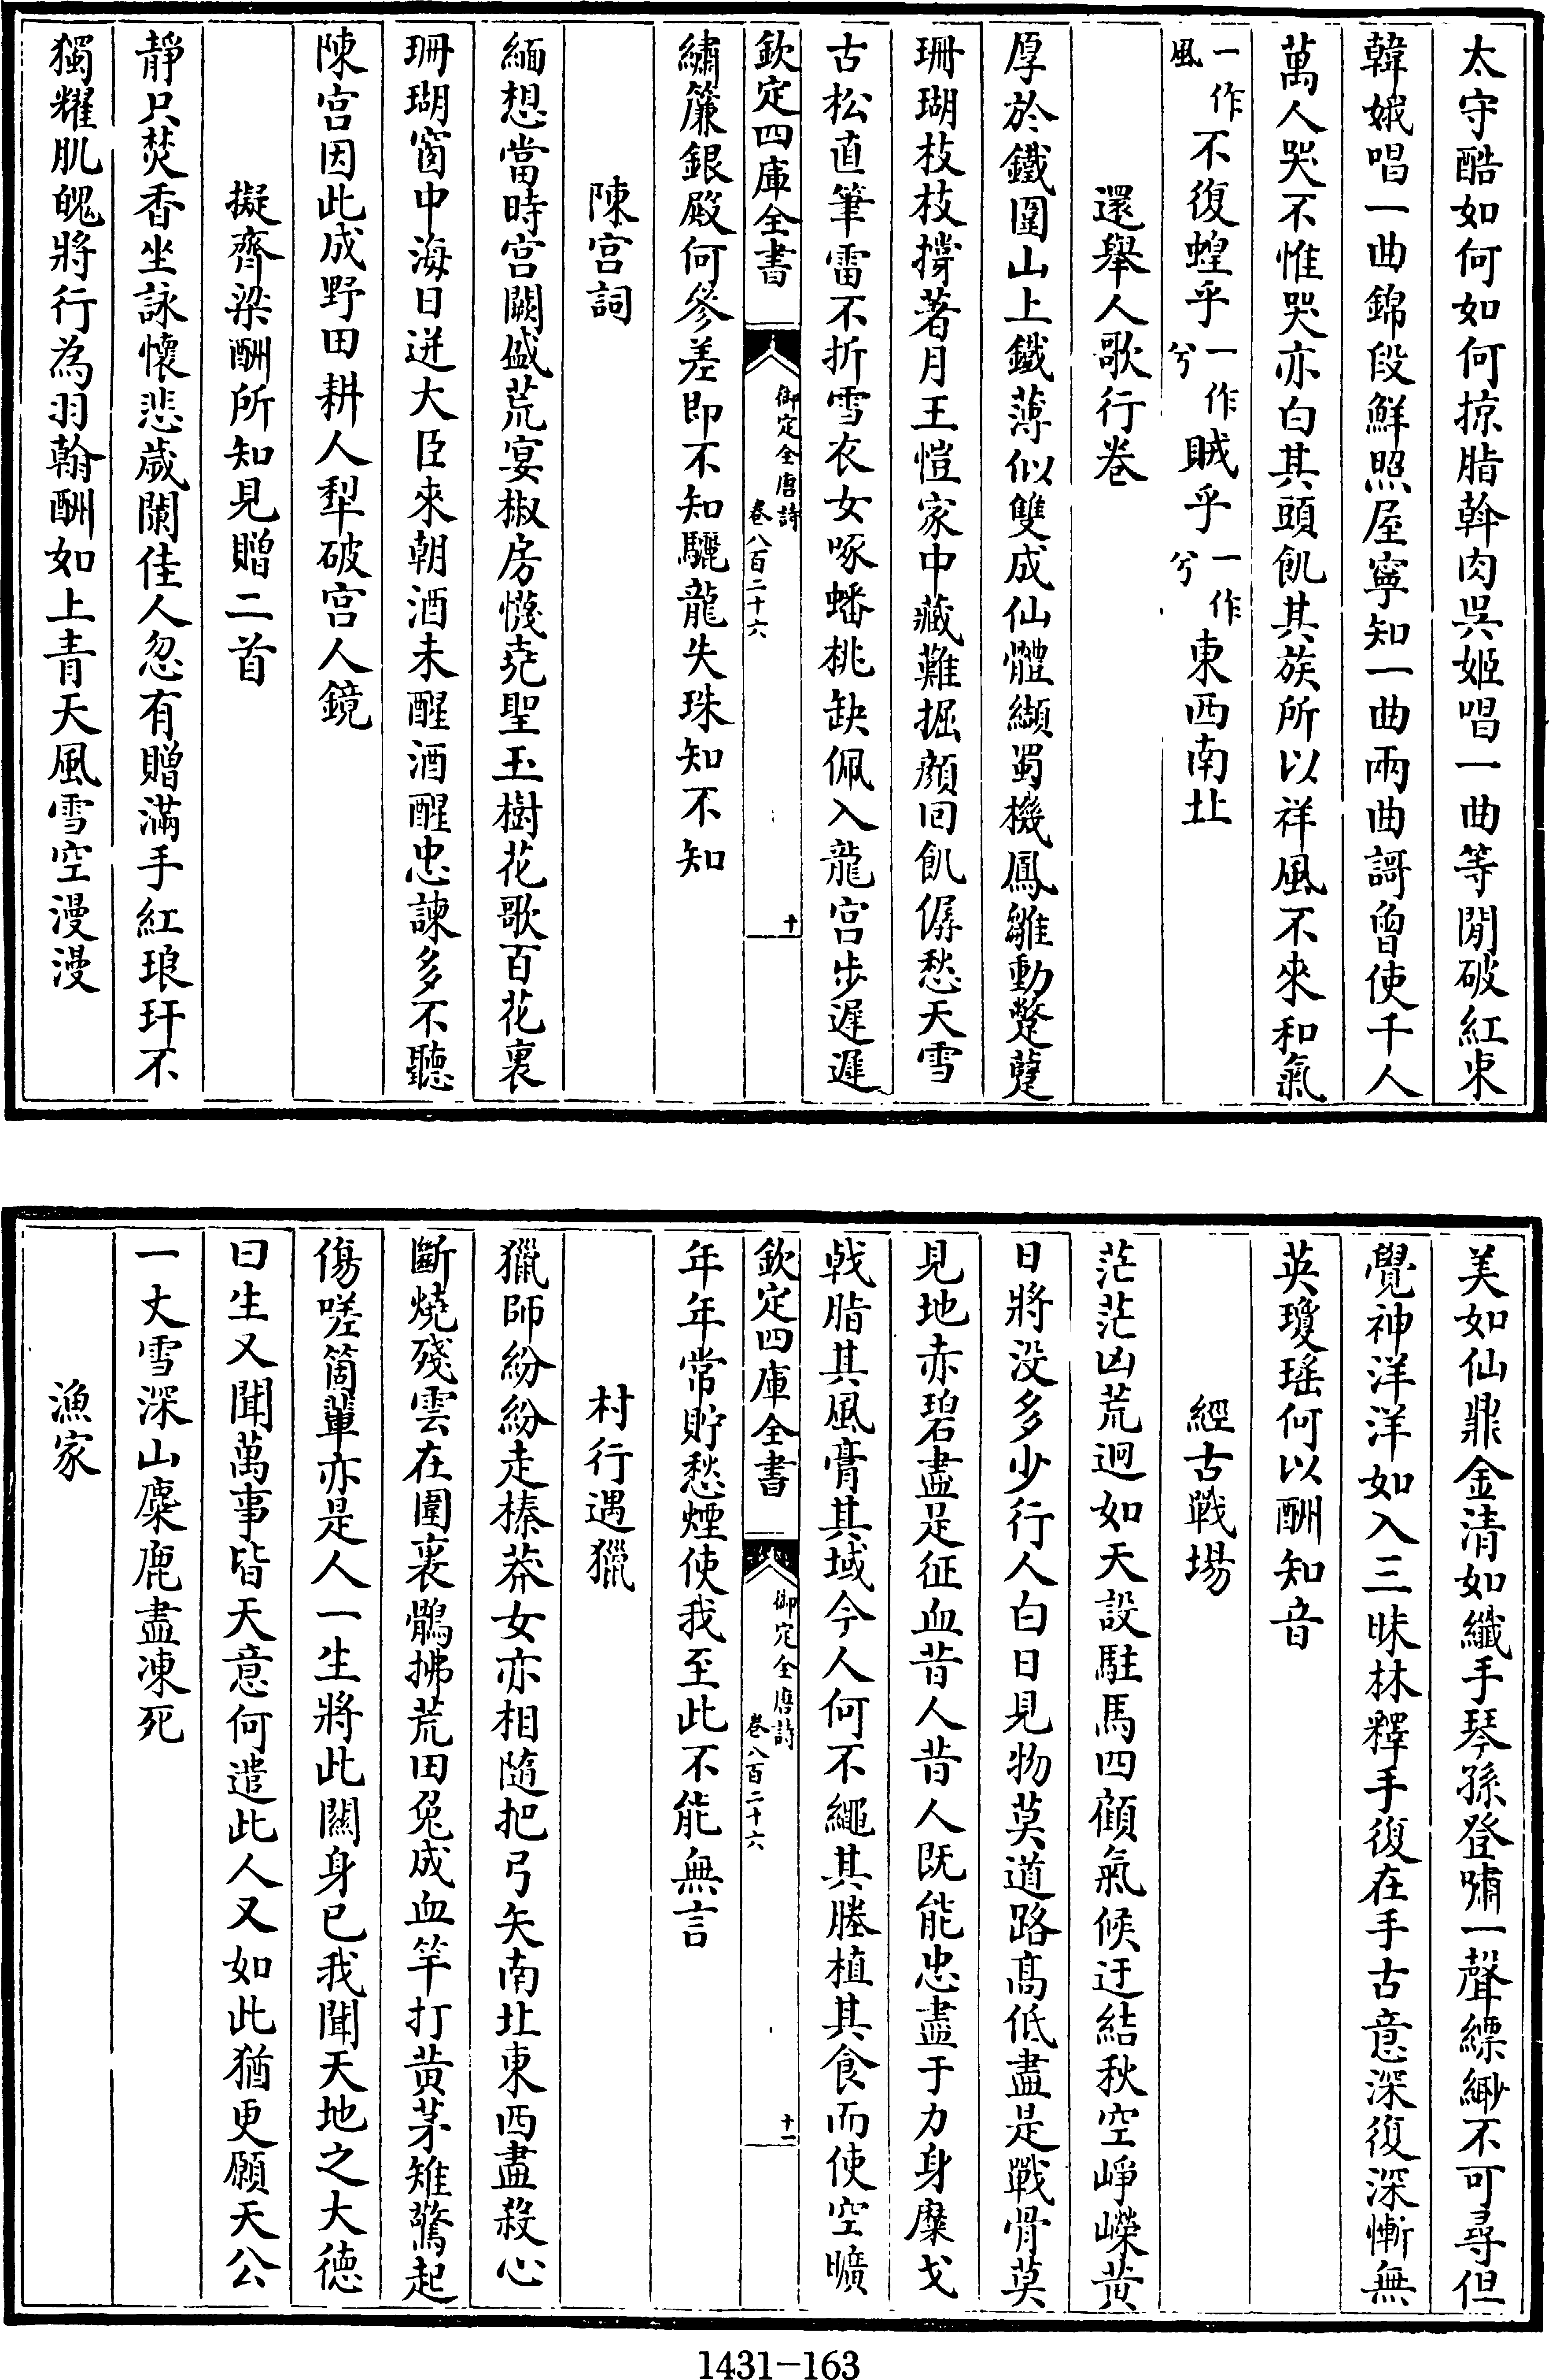 太守酷如何如何掠脂斡肉吳姬唱一曲等閒破紅束
韓娥唱一曲錦段鮮照屋寧知一曲兩曲謌曾使千人
萬人哭不惟哭亦白其頭飢其族所以祥風不來和氣
一作風不復蝗乎一作兮賊乎一作兮東西南北
還舉人歌行卷
厚於鐵圍山上鐵薄似雙成仙體纈蜀機鳳雛動蹩躠
珊瑚枝枝撐著月王愷家中藏難掘顔回飢僝愁天雪
古松直筆雷不折雪衣女啄蟠桃缺佩入龍宫步遲遲
欽定四庫全書
御定全唐詩
卷八百二十六
十
繡簾銀殿何參差即不知驪龍失珠知不知
陳宫詞
緬想當時宫闕盛荒宴椒房懱堯聖玉樹花歌百花裏
珊瑚窗中海日迸大臣來朝酒未醒酒醒忠諫多不聽
陳宫因此成野田耕人犁破宫人鏡
擬齊梁酬所知見贈二首
靜只焚香坐詠懷悲歲闌佳人忽有贈滿手紅琅玕不
獨耀肌魄將行為羽翰酬如上青天風雪空漫漫
美如仙鼎金清如纖手琴孫登嘯一聲縹緲不可尋但
覺神洋洋如入三昧林釋手復在手古意深復深慚無
英瓊瑤何以酬知音
經古戰場
茫茫凶荒迥如天設駐馬四顧氣候迂結秋空崢嶸黄
日將没多少行人白日見物莫道路髙低盡是戰骨莫
見地赤碧盡足征血昔人昔人既能忠盡于力身糜戈
戟脂其風膏其域今人何不繩其塍植其食而使空曠
欽定四庫全書
御定全唐詩
卷八百二十六
十一
年年常貯愁煙使我至此不能無言
村行遇獵
獵師紛紛走榛莽女亦相隨把弓矢南北東西盡殺心
斷燒殘雲在圍裏鶻拂荒田兔成血竿打黄茅雉驚起
傷嗟箇輩亦是人一生將此關身已我聞天地之大德
曰生又聞萬事皆天意何遣此人又如此猶更願天公
一丈雪深山麋鹿盡凍死
漁家
1431-163